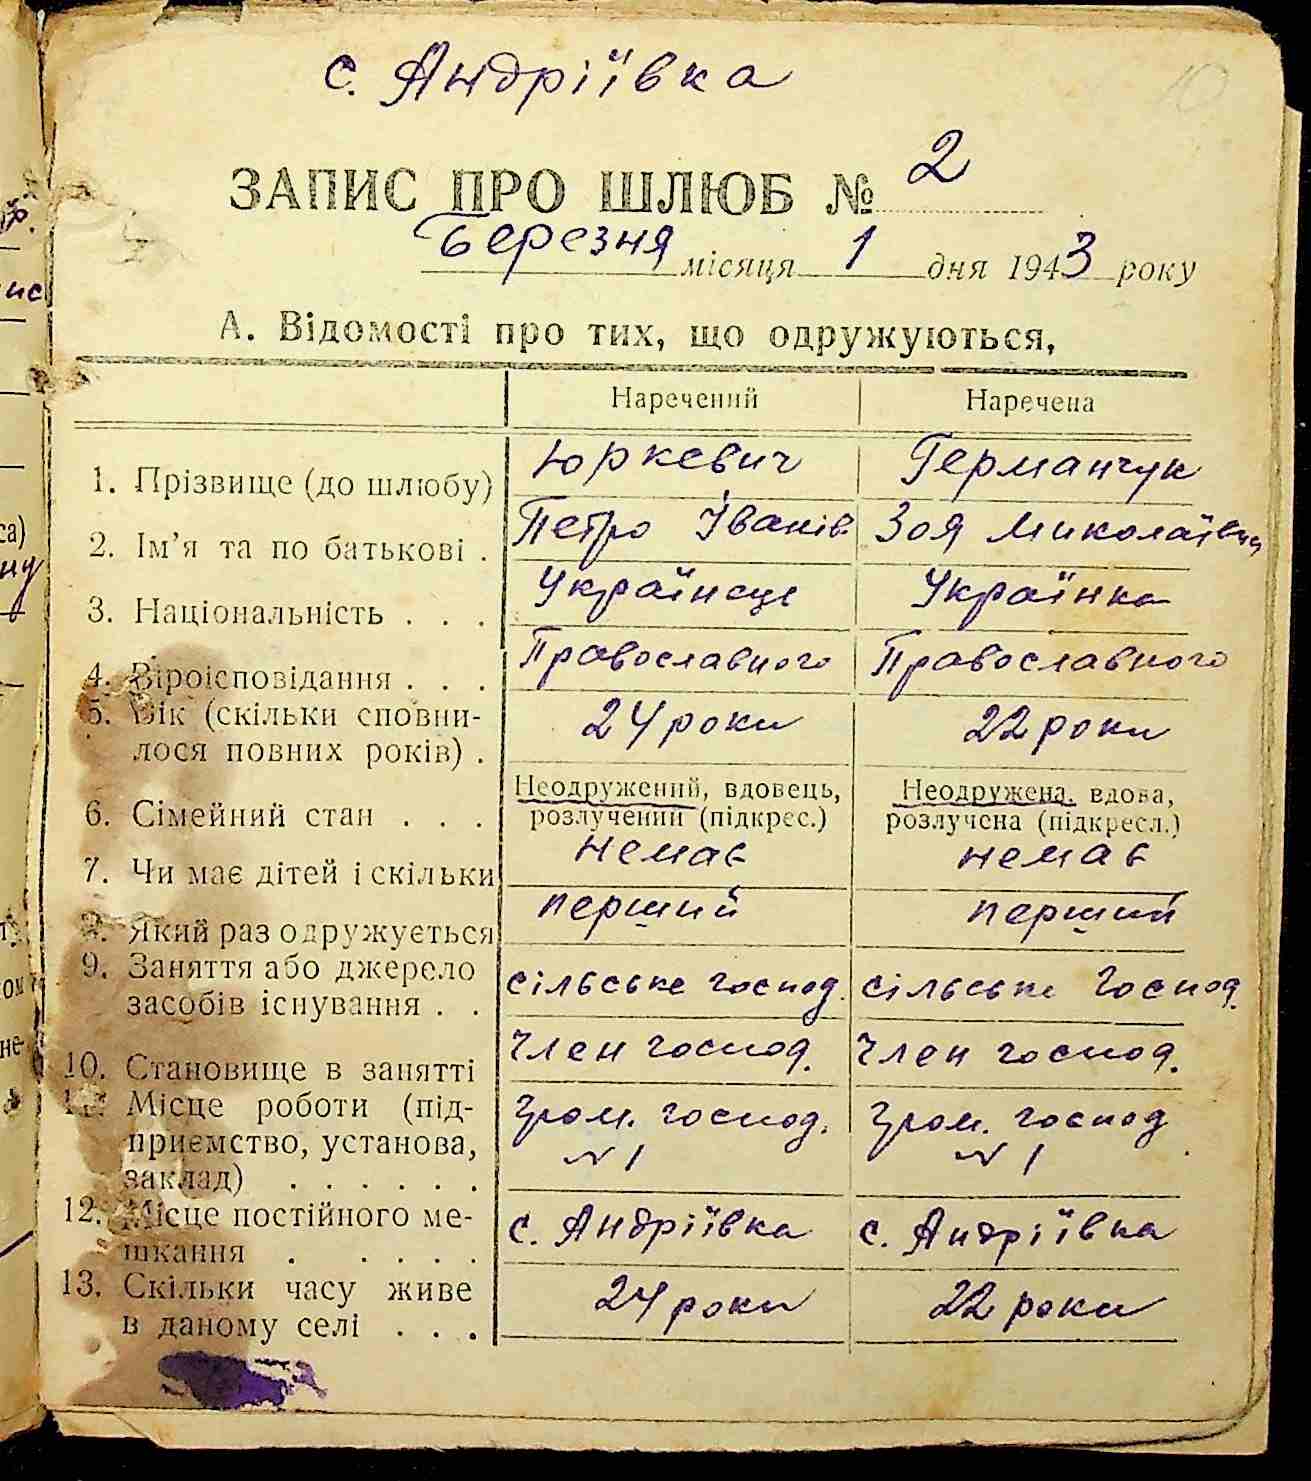 с. Андріївка
10
ЗАПИС ПРО ШЛЮБ № 2
Березня місяця 1 дня 1943 року
А. Відомості про тих, що одружуються,
Наречений Наречена
1. Прізвище (до шлюбу) Юркевич Германчук
2. Ім'я та по батькові . Петро Іванів. Зоя Миколаївна
3. Національність . . . Українець Українка
4. Віроісповідання . . . Православного Православного
5. Вік (скільки сповни-
лося повних років) . 24 роки 22 роки
6. Сімейний стан . . . Неодружений, вдовець, розлучений (підкрес.) Неодружена, вдова, розлучена (підкресл.)
7. Чи має дітей і скільки немає немає
8. Який раз одружується перший перший
9. Заняття або джерело
засобів існування . . сільське господ. сільське господ.
10. Становище в занятті Член господ. Член господ.
11. Місце роботи (під-
приємство, установа,
заклад) . . . . . . Гром. господ. № 1 Гром. господ № 1
12. Місце постійного ме-
шкання . . . . . с. Андріївка с. Андріївка
13. Скільки часу живе
в даному селі . . . 24 роки 22 роки